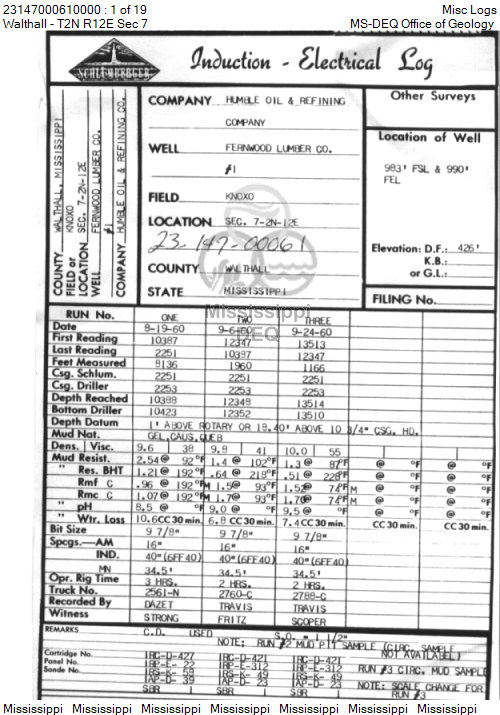 23147000610000 : 1 of 19 Misc Logs
Walthall - T2N R12E Sec 7 MS-DEQ Office of Geology
SCHLUMBERGER
Induction - Electrical Log
COUNTY WALTHALL, MISSISSIPPI
FIELD or KNOXO
LOCATION SEC. 7-2N-12E
WELL FERNWOOD LUMBER CO. #1
COMPANY HUMBLE OIL & REFINING CO.
COMPANY HUMBLE OIL & REFINING
COMPANY
WELL FERNWOOD LUMBER CO.
#1
FIELD KNOXO
LOCATION SEC. 7-2N-12E
23-147-00061
COUNTY WALTHALL
STATE MISSISSIPPI
Other Surveys
Location of Well
983' FSL & 990'
FEL
Elevation: D.F.: 426'
K.B.:
or G.L.:
FILING No.
Mississippi
DEQ
RUN No. ONE TWO THREE
Date 8-19-60 9-6-60 9-24-60
First Reading 10387 12347 13513
Last Reading 2251 10387 12347
Feet Measured 8136 1960 1166
Csg. Schlum. 2251 2251 2251
Csg. Driller 2253 2253 2253
Depth Reached 10388 12348 13514
Bottom Driller 10423 12352 13510
Depth Datum 1' ABOVE ROTARY OR 18.40' ABOVE 10 3/4" CSG. HD.
Mud Nat. GEL,CAUS,QUEB
Dens. | Visc. 9.6 | 38 9.8 | 41 10.0 | 55
Mud Resist. 2.54 @ 92 °F 1.4 @ 102 °F 1.3 @ 87 °F @ °F @ °F
" Res. BHT 1.21 @ 192 °F .64 @ 218 °F .51 @ 228 °F @ °F @ °F
" Rmf C .96 @ 192 °F M 1.5 @ 93 °F 1.52 @ 74 °F M @ °F @ °F
" Rmc C 1.07 @ 192 °F M 1.7 @ 93 °F 1.70 @ 74 °F M @ °F @ °F
" pH 8.5 @ °F 9.0 @ °F 9.5 @ °F @ °F @ °F
" Wtr. Loss 10.6 CC 30 min. 6.8 CC 30 min. 7.4 CC 30 min. CC 30 min. CC 30 min.
Bit Size 9 7/8" 9 7/8" 9 7/8"
Spcgs.—AM 16" 16" 16"
IND. 40"(6FF40) 40"(6FF40) 40"(6FF40)
MN 34.5' 34.5' 34.5'
Opr. Rig Time 3 HRS. 2 HRS. 2 HRS.
Truck No. 2561-N 2760-C 2788-C
Recorded By DAZET TRAVIS TRAVIS
Witness STRONG FRITZ SCOPER
REMARKS C.D. USED S.O. = 1 1/2"
NOTE: RUN #2 MUD PIT SAMPLE (CIRC. SAMPLE
NOT AVAILABLE)
Cartridge No. IRC-D-427 IRC-D-421 IRC-D-421
Panel No. IRP-E- 22 IRP-E-312 IRP-E-312 RUN #3 CIRC. MUD SAMPLE
Sonde No. IRS-K- 59 IRS-K- 49 IRS-K- 49
IAP-D- 39 IAP-D- 23 IAP-D- 23 NOTE: SCALE CHANGE FOR
SBR SBR SBR RUN #3
Mississippi Mississippi Mississippi Mississippi Mississippi Mississippi Mississippi Mississippi